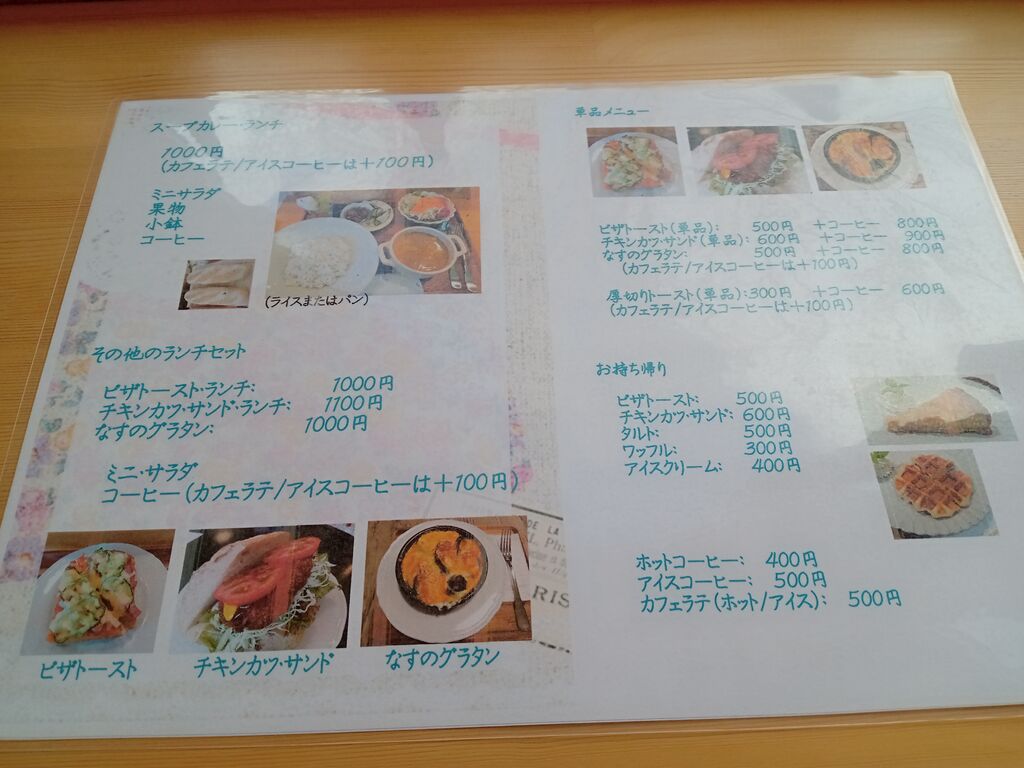 スープカレー・ランチ
1000円
(カフェラテ/アイスコーヒーは+100円)
ミニサラダ
果物
小鉢
コーヒー
(ライスまたはパン)
その他のランチセット
ピザトースト・ランチ: 1000円
チキンカツ・サンド・ランチ: 1100円
なすのグラタン: 1000円
ミニ・サラダ
コーヒー(カフェラテ/アイスコーヒーは+100円)
ピザトースト
チキンカツ・サンド
なすのグラタン
DE LA
RIS
単品メニュー
ピザトースト(単品): 500円 +コーヒー 800円
チキンカツ・サンド(単品): 600円 +コーヒー 900円
なすのグラタン: 500円 +コーヒー 800円
(カフェラテ/アイスコーヒーは+100円)
厚切りトースト(単品):300円 +コーヒー 600円
(カフェラテ/アイスコーヒーは+100円)
お持ち帰り
ピザトースト: 500円
チキンカツ・サンド: 600円
タルト: 500円
ワッフル: 300円
アイスクリーム: 400円
ホットコーヒー: 400円
アイスコーヒー: 500円
カフェラテ(ホット/アイス): 500円